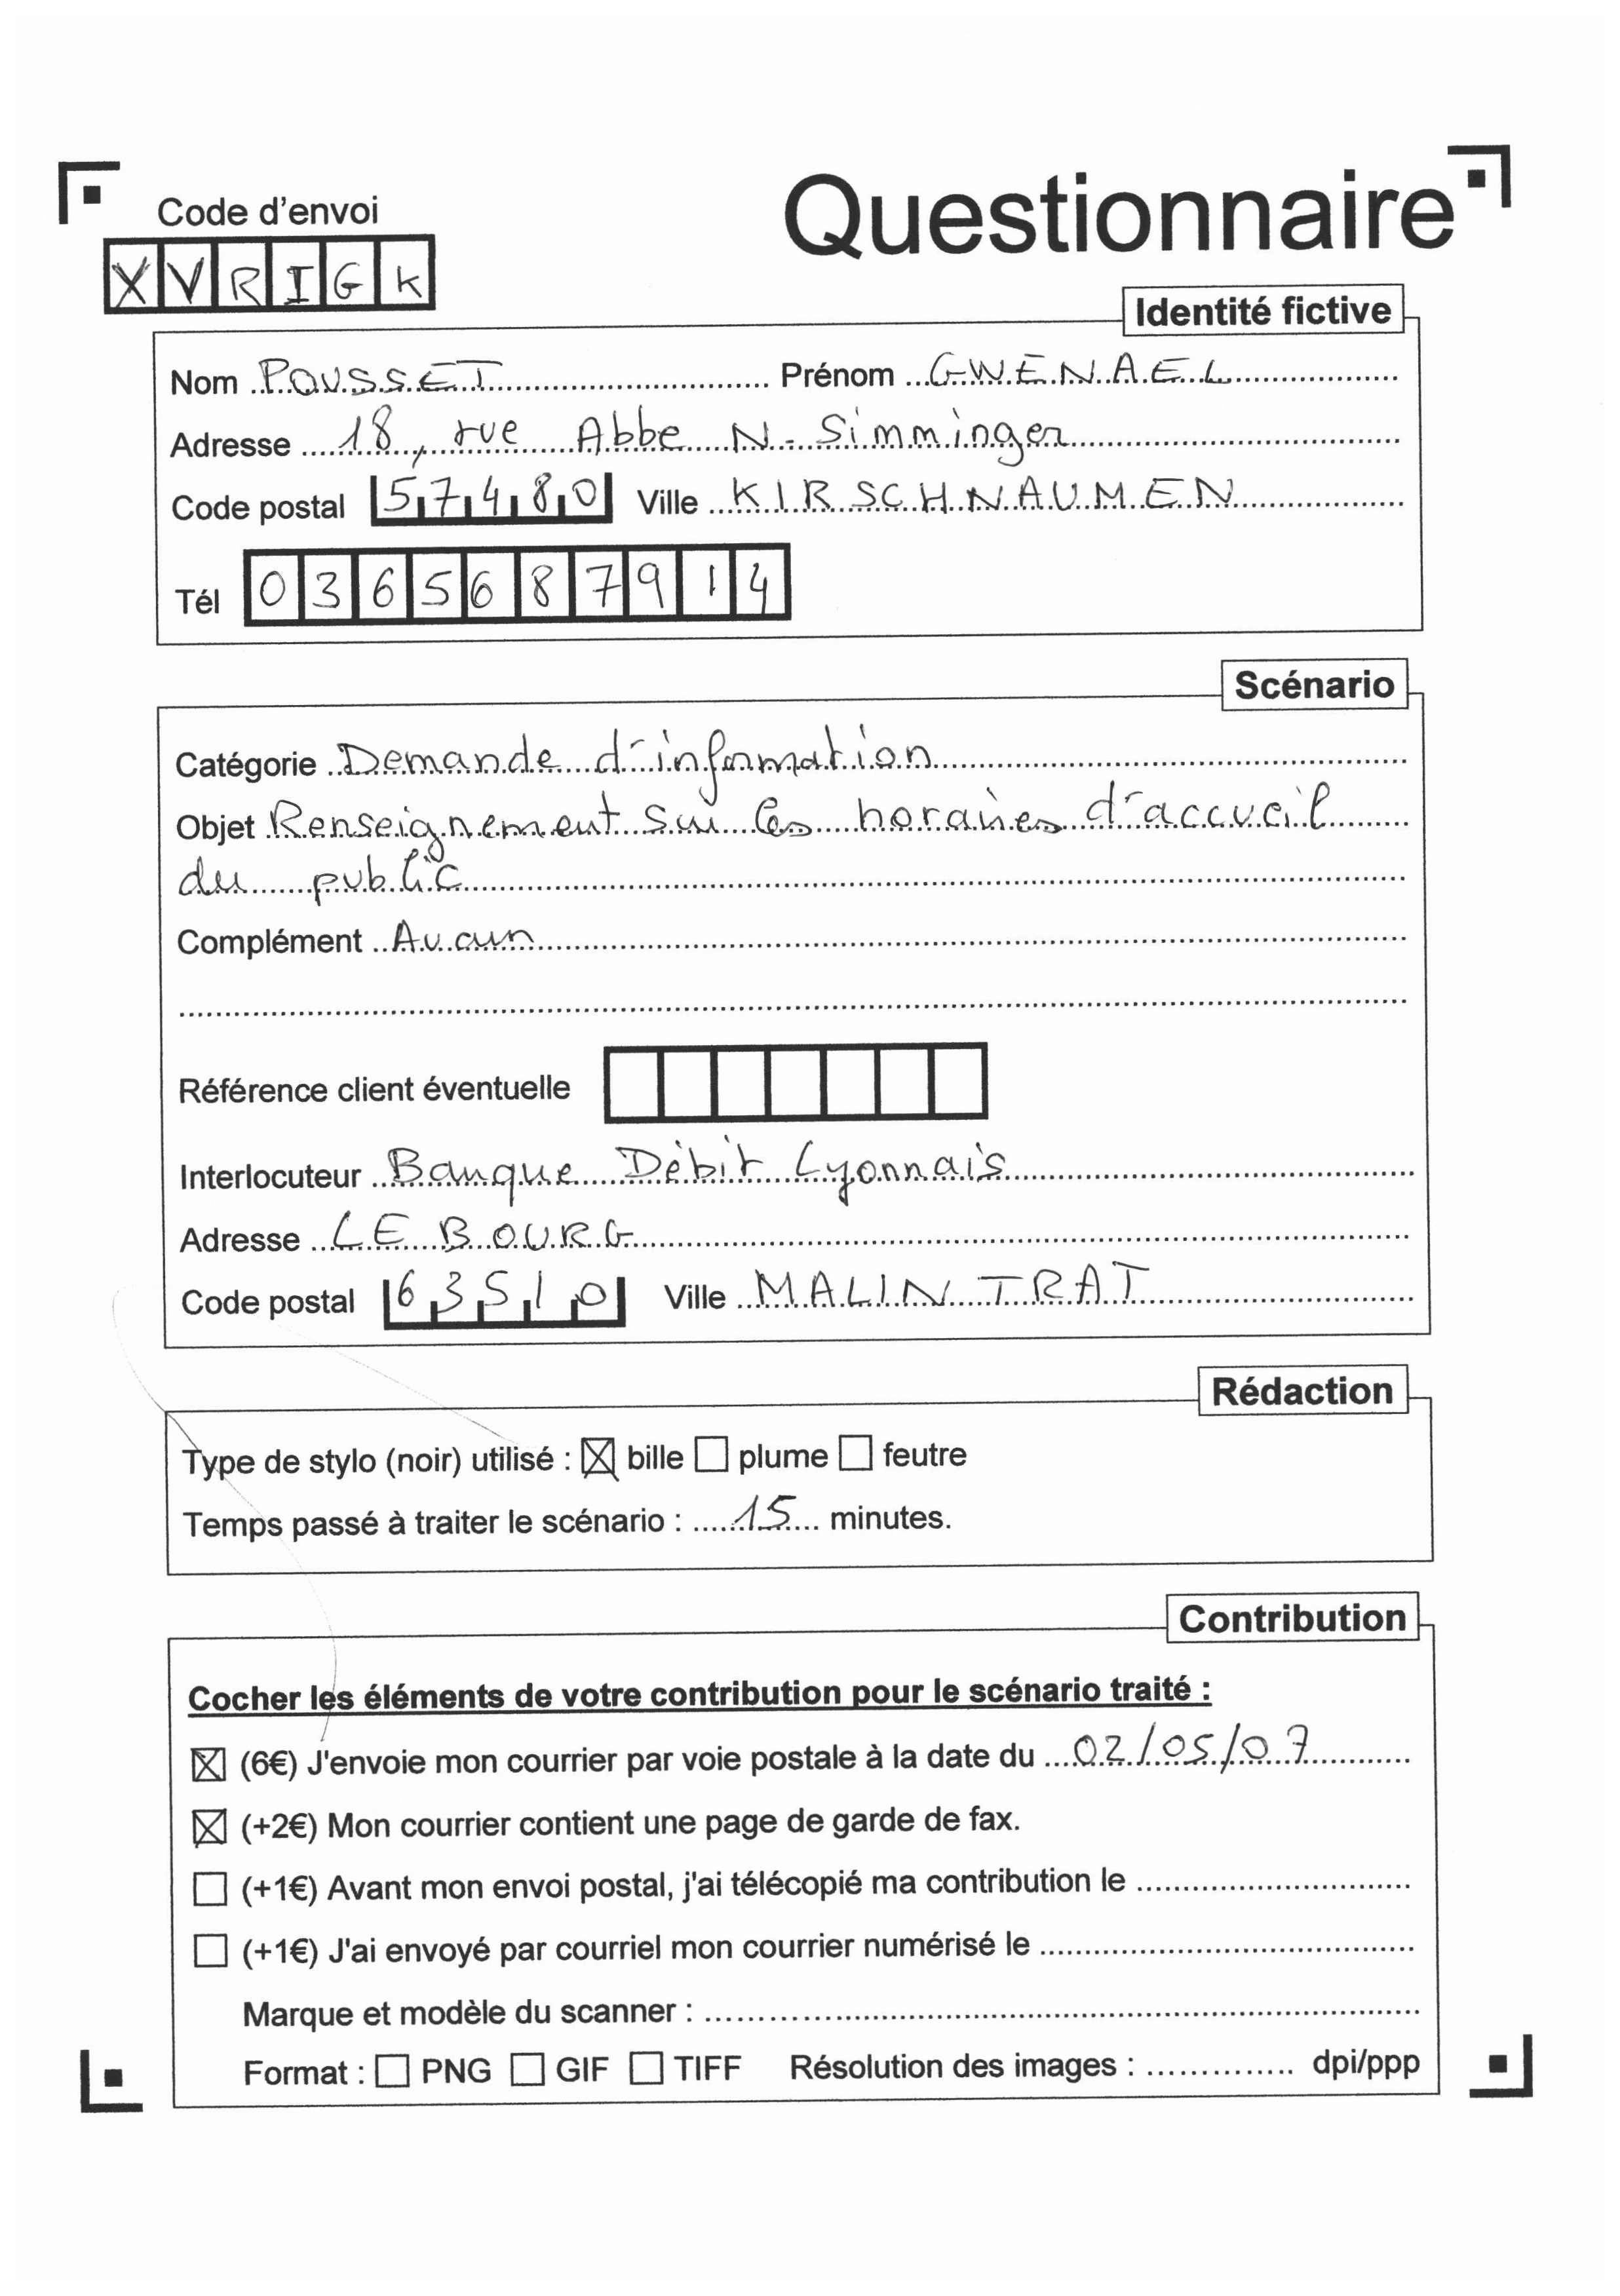 Code d'envoi
Questionnaire
XVRIGK
Identité fictive
Nom POUSSET Prénom GWENAEL
Adresse 18, rue Abbe N. Simminger
Code postal 57480 Ville KIRSCHNAUMEN
Tél 0365687914
Scénario
Catégorie Demande d'information
Objet Renseignement sur les horaires d'accueil
du public
Complément Aucun
Référence client éventuelle
Interlocuteur Banque Débit Lyonnais
Adresse LE BOURG
Code postal 63510 Ville MALINTRAT
Rédaction
Type de stylo (noir) utilisé : ☒ bille ☐ plume ☐ feutre
Temps passé à traiter le scénario : 15 minutes.
Contribution
Cocher les éléments de votre contribution pour le scénario traité :
☒ (6€) J'envoie mon courrier par voie postale à la date du 02/05/07
☒ (+2€) Mon courrier contient une page de garde de fax.
☐ (+1€) Avant mon envoi postal, j'ai télécopié ma contribution le
☐ (+1€) J'ai envoyé par courriel mon courrier numérisé le
Marque et modèle du scanner :
Format : ☐ PNG ☐ GIF ☐ TIFF Résolution des images : dpi/ppp